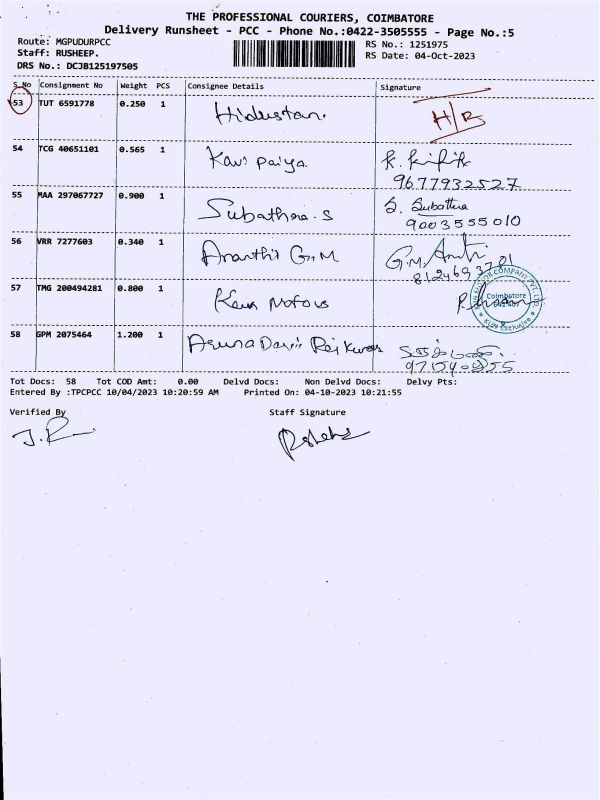 THE PROFESSIONAL COURIERS, COIMBATORE
Delivery Runsheet - PCC - Phone No.:0422-3505555 - Page No.:5
Route: MGPUDURPCC RS No.: 1251975
Staff: RUSHEEP. RS Date: 04-Oct-2023
DRS No.: DCJB125197505
S.No Consignment No Weight PCS Consignee Details Signature
53 TUT 6591778 0.250 1 Hidustan. H/R
54 TCG 40651101 0.565 1 Kavi Paiya.
9677932527
55 MAA 297067727 0.900 1 Subathra.S S. Subathra
9003555010
56 VRR 7277603 0.340 1 Ananthi G.M G.M. Anithi
8124693701
57 TMG 200494281 0.800 1 Kaun Motors
Coimbatore
58 GPM 2075464 1.200 1 Aruna Devi Raj Kumar
Tot Docs: 58 Tot COD Amt: 0.00 Delvd Docs: Non Delvd Docs: Delvy Pts:
Entered By :TPCPCC 10/04/2023 10:20:59 AM Printed On: 04-10-2023 10:21:55
Verified By Staff Signature